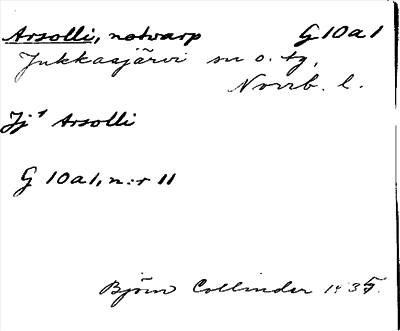 Arsolli, notvarp G 10 a 1
Jukkasjärvi sn o. tg,
Norrb. l.
Jj¹ Arsolli
G 10a1, n:r 11
Björn Collinder 1935.